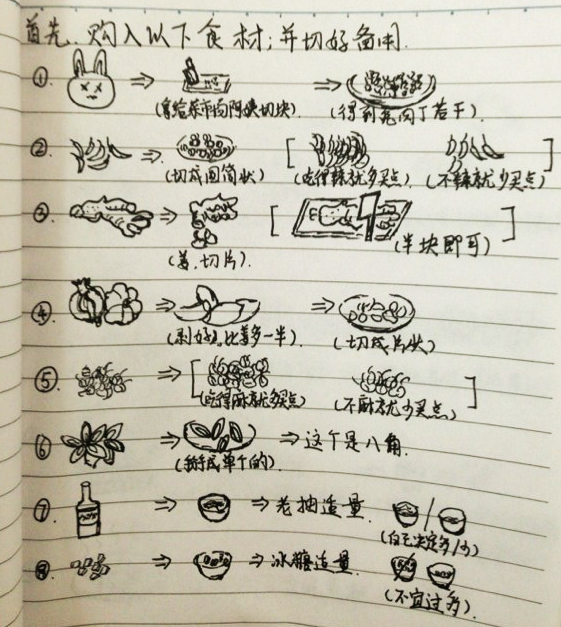 首先,购入以下食材;并切好备用.
① (拿给菜市场阿姨切块) (得到兔肉丁若干)
② (切成圆筒状) (吃得辣就多买点) (不辣就少买点)
③ (姜,切片) (半块即可)
④ (剥好,比姜多一半) (切成片状)
⑤ (吃得麻就多买点) (不麻就少买点)
⑥ (掰成单个的) 这个是八角.
⑦ 老抽适量. (自己决定多/少)
⑧ 冰糖适量 (不宜过多)